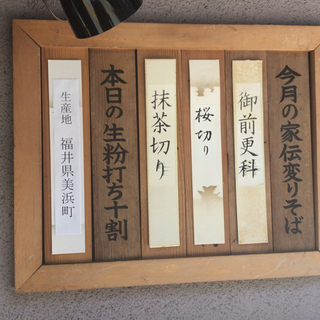 今月の家伝変りそば
御前更科
桜切り
抹茶切り
本日の生粉打ち十割
生産地 福井県美浜町